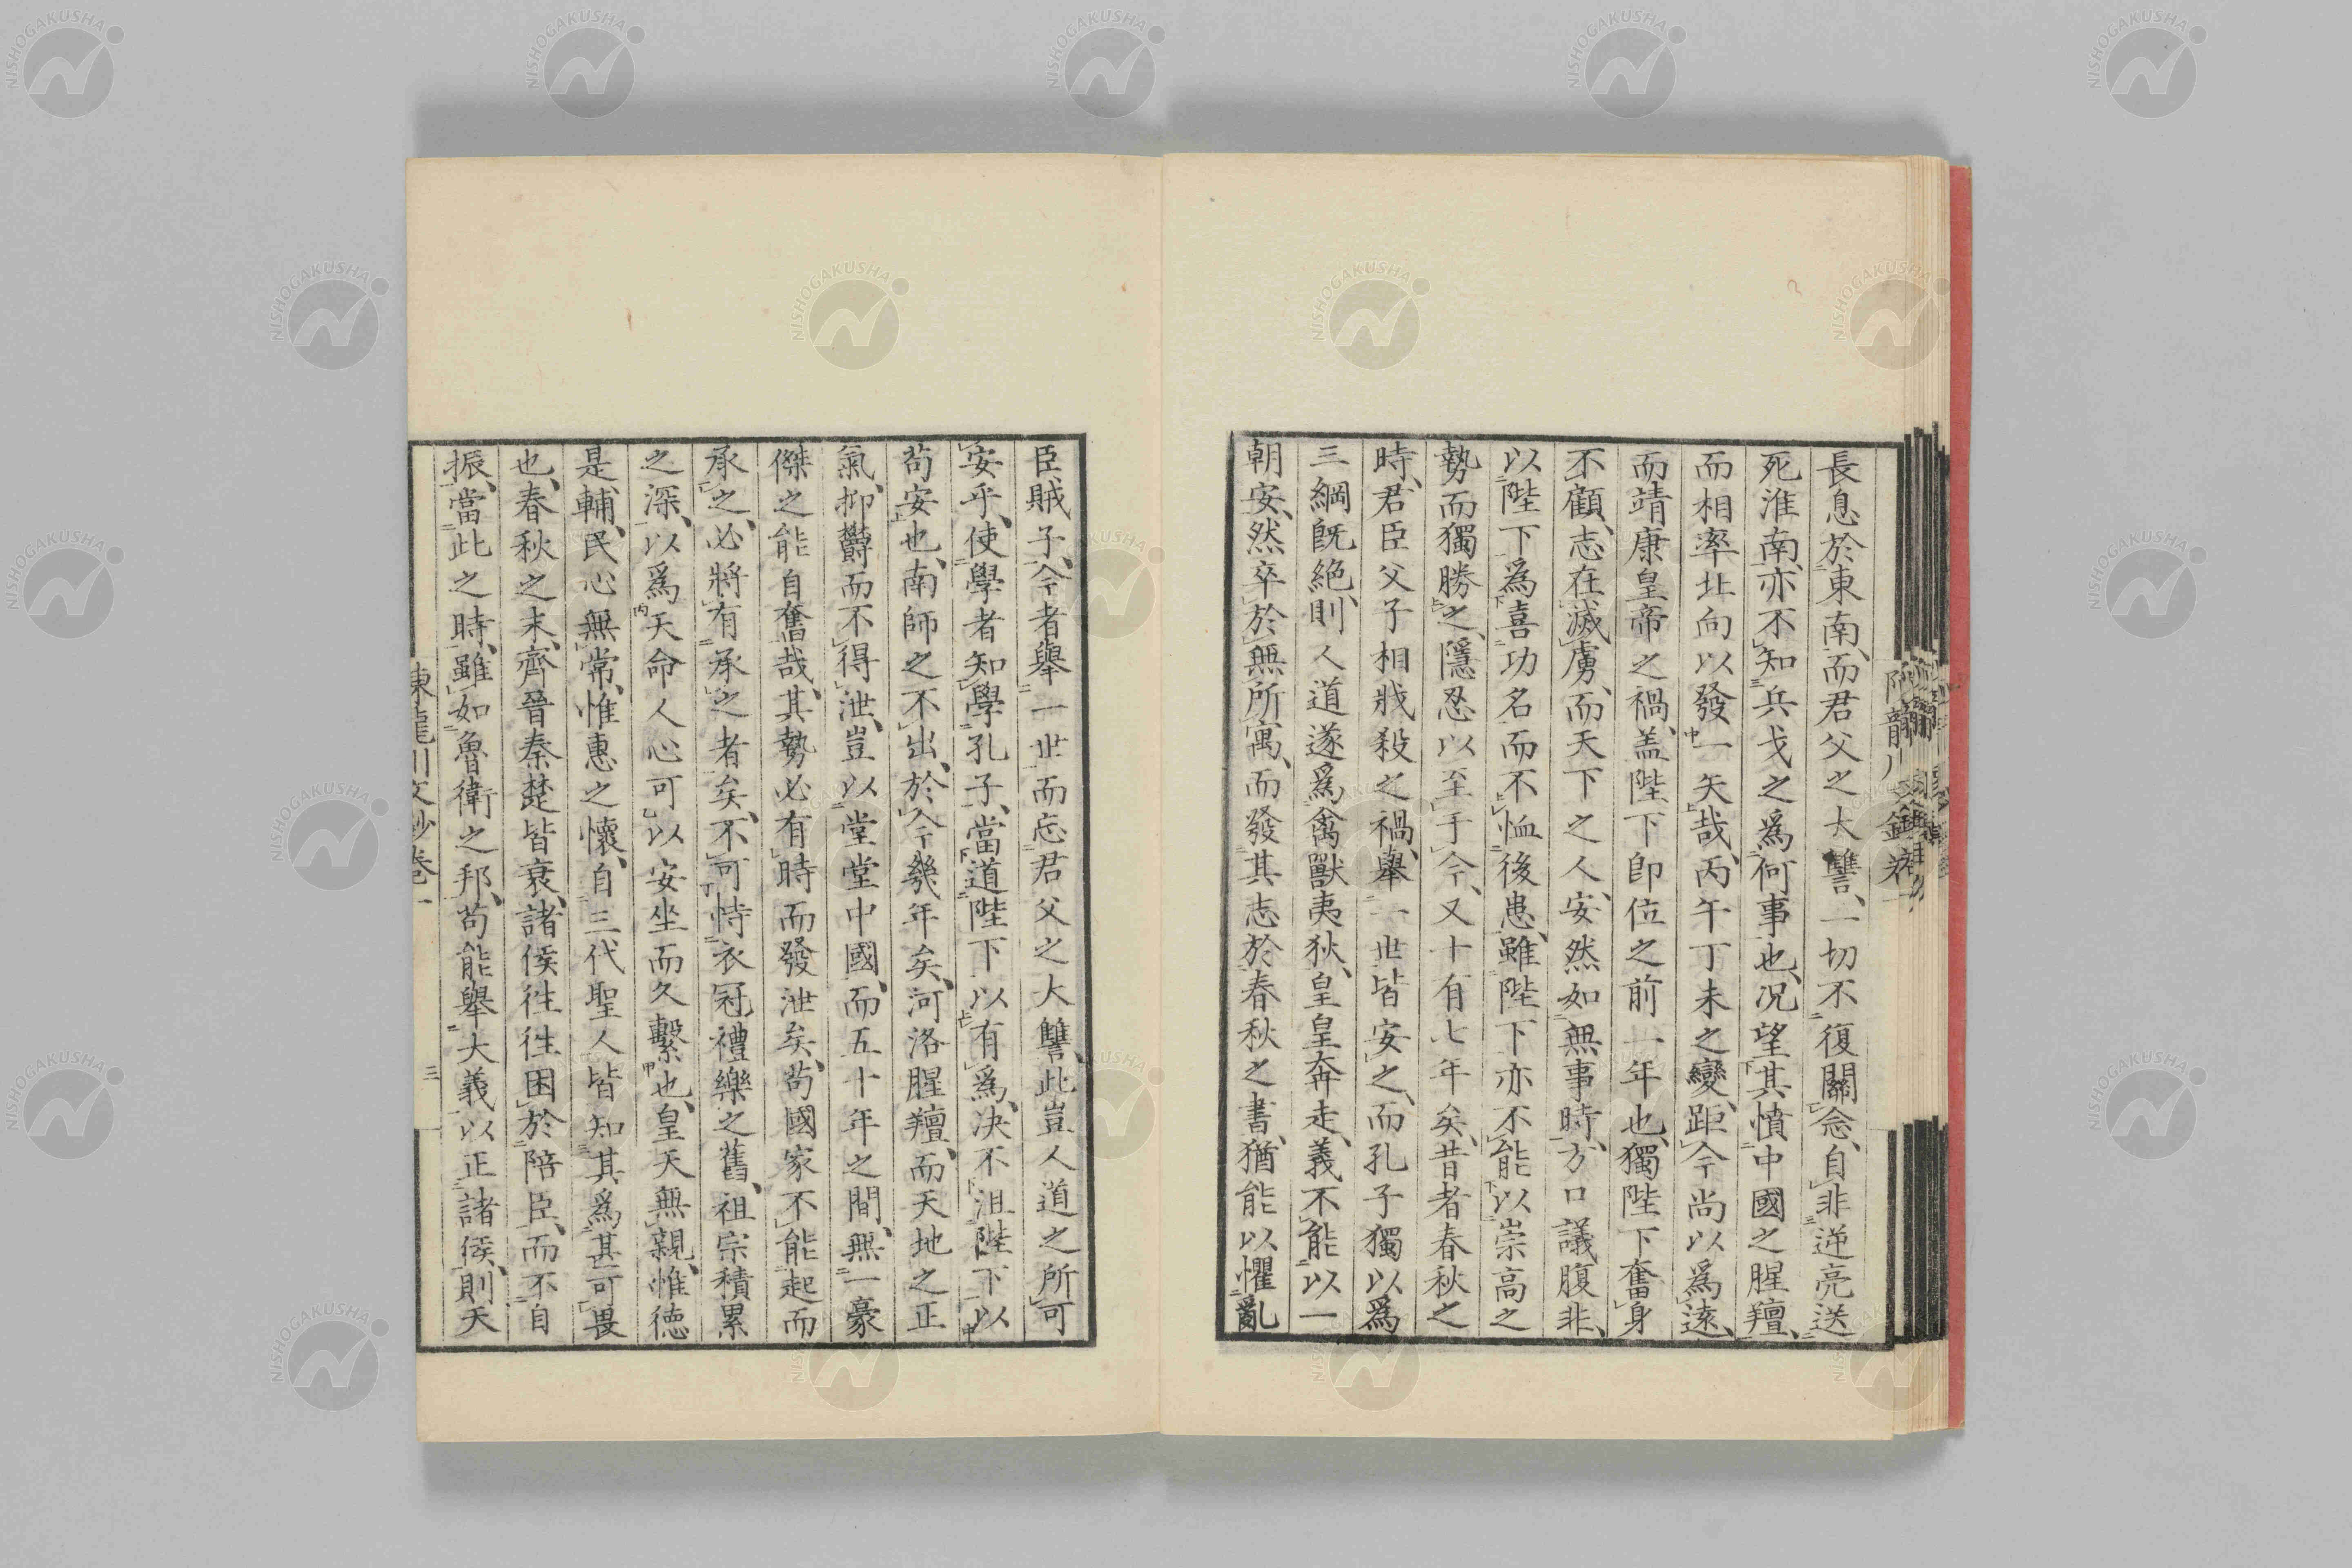 長息於東南、而君父之大讐、一切不復關念、自非逆亮送
死淮南、亦不知兵戈之爲何事也、况望其憤中國之腥羶、
而相率北向以發一矢哉、丙午丁未之變、距今尚以爲遠、
而靖康皇帝之禍、盖陛下即位之前一年也、獨陛下奮身
不顧、志在滅虜、而天下之人、安然如無事時、方口議腹非、
以陛下爲喜功名而不恤後患、雖陛下亦不能以崇高之
勢而獨勝之、隱忍以至于今、又十有七年矣、昔者春秋之
時、君臣父子相戕殺之禍、舉一世皆安之、而孔子獨以爲
三綱旣絶、則人道遂爲禽獸夷狄、皇皇奔走、義不能以一
朝安、然卒於無所寓、而發其志於春秋之書、猶能以懼亂
臣賊子、今者舉一世而忘君父之大讐、此豈人道之所可
安乎、使學者知學孔子、當道陛下以有爲、決不沮陛下以
苟安也、南師之不出、於今幾年矣、河洛腥羶、而天地之正
氣、抑鬱而不得泄、豈以堂堂中國、而五十年之間、無一豪
傑之能自奮哉、其勢必有時而發泄矣、苟國家不能起而
承之、必將有承之者矣、不可恃衣冠禮樂之舊、祖宗積累
之深、以爲天命人心可以安坐而久繫也、皇天無親、惟徳
是輔、民心無常、惟惠之懷、自三代聖人皆知其爲甚可畏
也、春秋之末、齊晉秦楚皆衰、諸侯往往困於陪臣、而不自
振、當此之時、雖如魯衛之邦、苟能舉大義以正諸侯、則天
陳龍川文鈔卷一
三
NISHOGAKUSHA